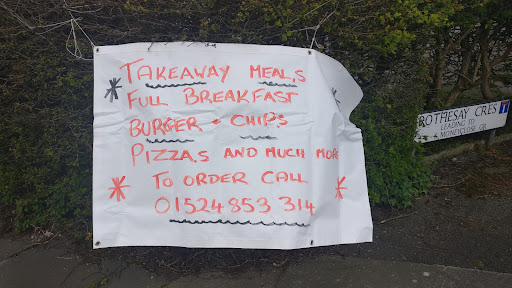 TAKEAWAY MEAL,S
FULL BREAKFAST
BURGER + CHIPS
PIZZA,S AND MUCH MORE
TO ORDER CALL
01524 853 314
ROTHESAY CRES
LEADING TO
MONEYCLOSE GR